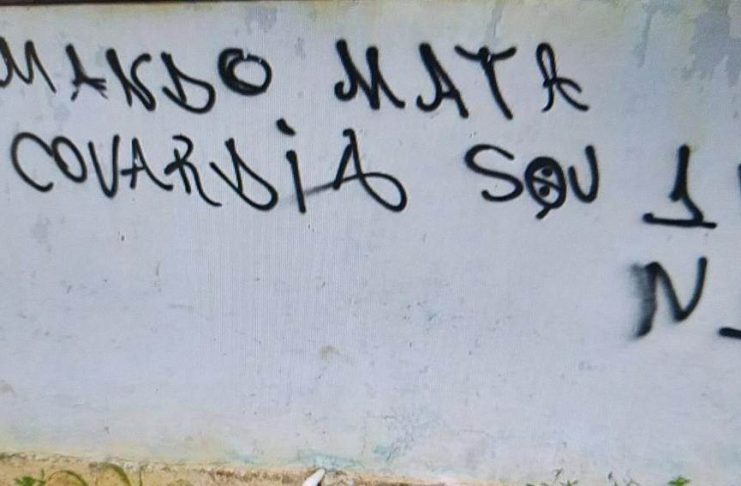 MANDO MATA
COVARDIA SOU 1
N